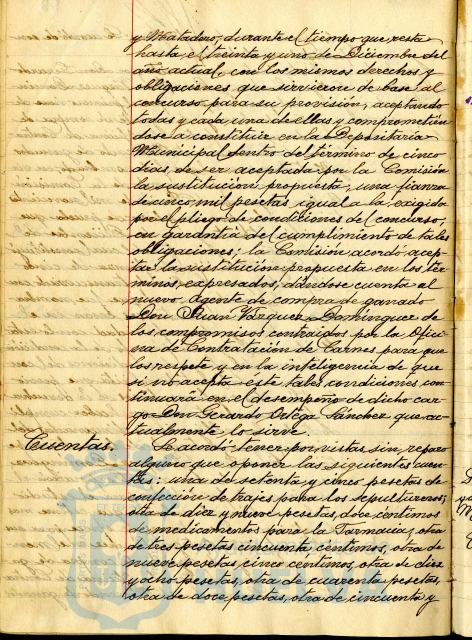 y Matadero, durante el tiempo que resta
hasta el treinta y uno de Diciembre del
año actual, con los mismos derechos y
obligaciones que sirvieron de base al
concurso para su provisión, aceptando
todas y cada una de ellas y comprometién
dose a constituir en la Depositaría
Municipal dentro del término de cinco
dias, de ser aceptada por la Comisión
la sustitución propuesta, una fianza
de cinco mil pesetas igual a la exigida
por el pliego de condiciones del concurso,
en garantía del cumplimiento de tales
obligaciones; la Comisión acordó acep-
tar la sustitución propuesta en los tér-
minos expresados, dándose cuenta al
nuevo Agente de compra de ganado
Don Juan Vázquez Domínguez de
los compromisos contraidos por la Ofici-
na de Contratación de Carnes para que
los respete y en la inteligencia de que
si no acepta este tales condiciones con-
tinuará en el desempeño de dicho car-
go Don Gerardo Ortega Sánchez que ac-
tualmente lo sirve.
Cuentas. Se acordó tener por vistas sin reparo
alguno que oponer las siguientes cuen-
tas: una de setenta y cinco pesetas de
confección de trajes para los sepultureros,
otra de diez y nueve pesetas, doce céntimos
de medicamentos para la Farmacia, otra
de tres pesetas cincuenta céntimos, otra de
nueve pesetas, cinco céntimos, otra de diez
y ocho pesetas, otra de cuarenta pesetas,
otra de doce pesetas, otra de cincuenta y